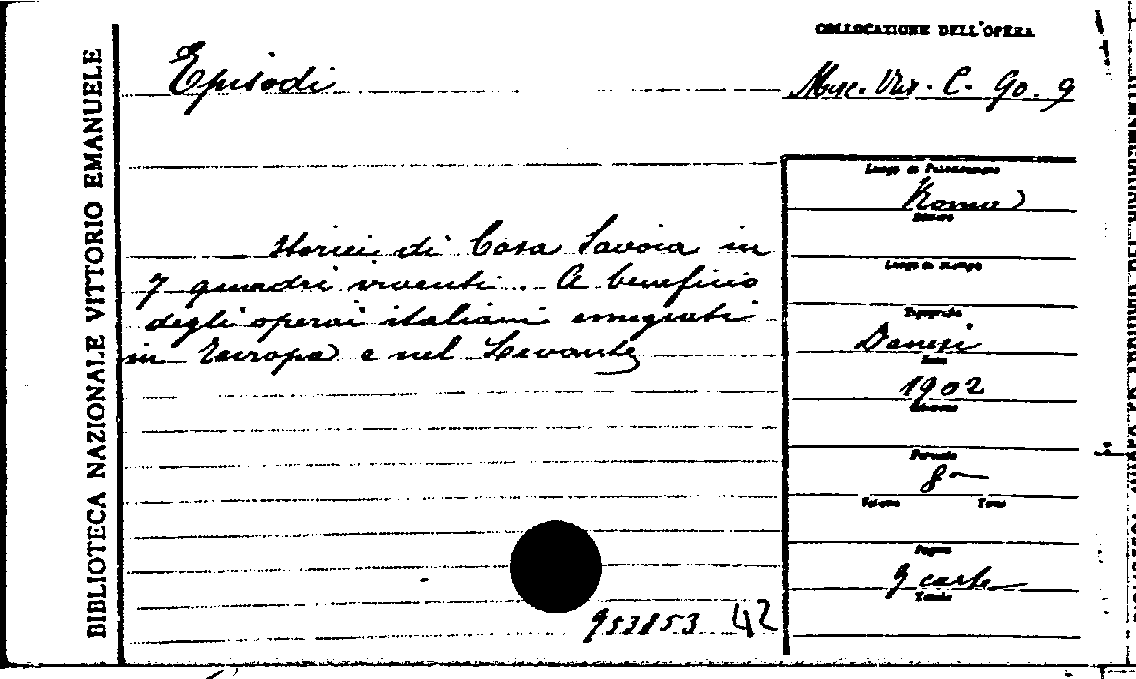 BIBLIOTECA NAZIONALE VITTORIO EMANUELE
COLLOCAZIONE DELL'OPERA
Episodi
Misc. Var. C. 90. 9
storici di Casa Savoia in
7 quadri viventi. A beneficio
degli operai italiani emigrati
in Europa e nel Levante
Luogo di Pubblicazione
Roma
Editore
Luogo di stampa
Tipografia
Danesi
Data
1902
Edizione
Formato
8
Volume Tomo
Pagine
9 carte
Tavole
953853 42